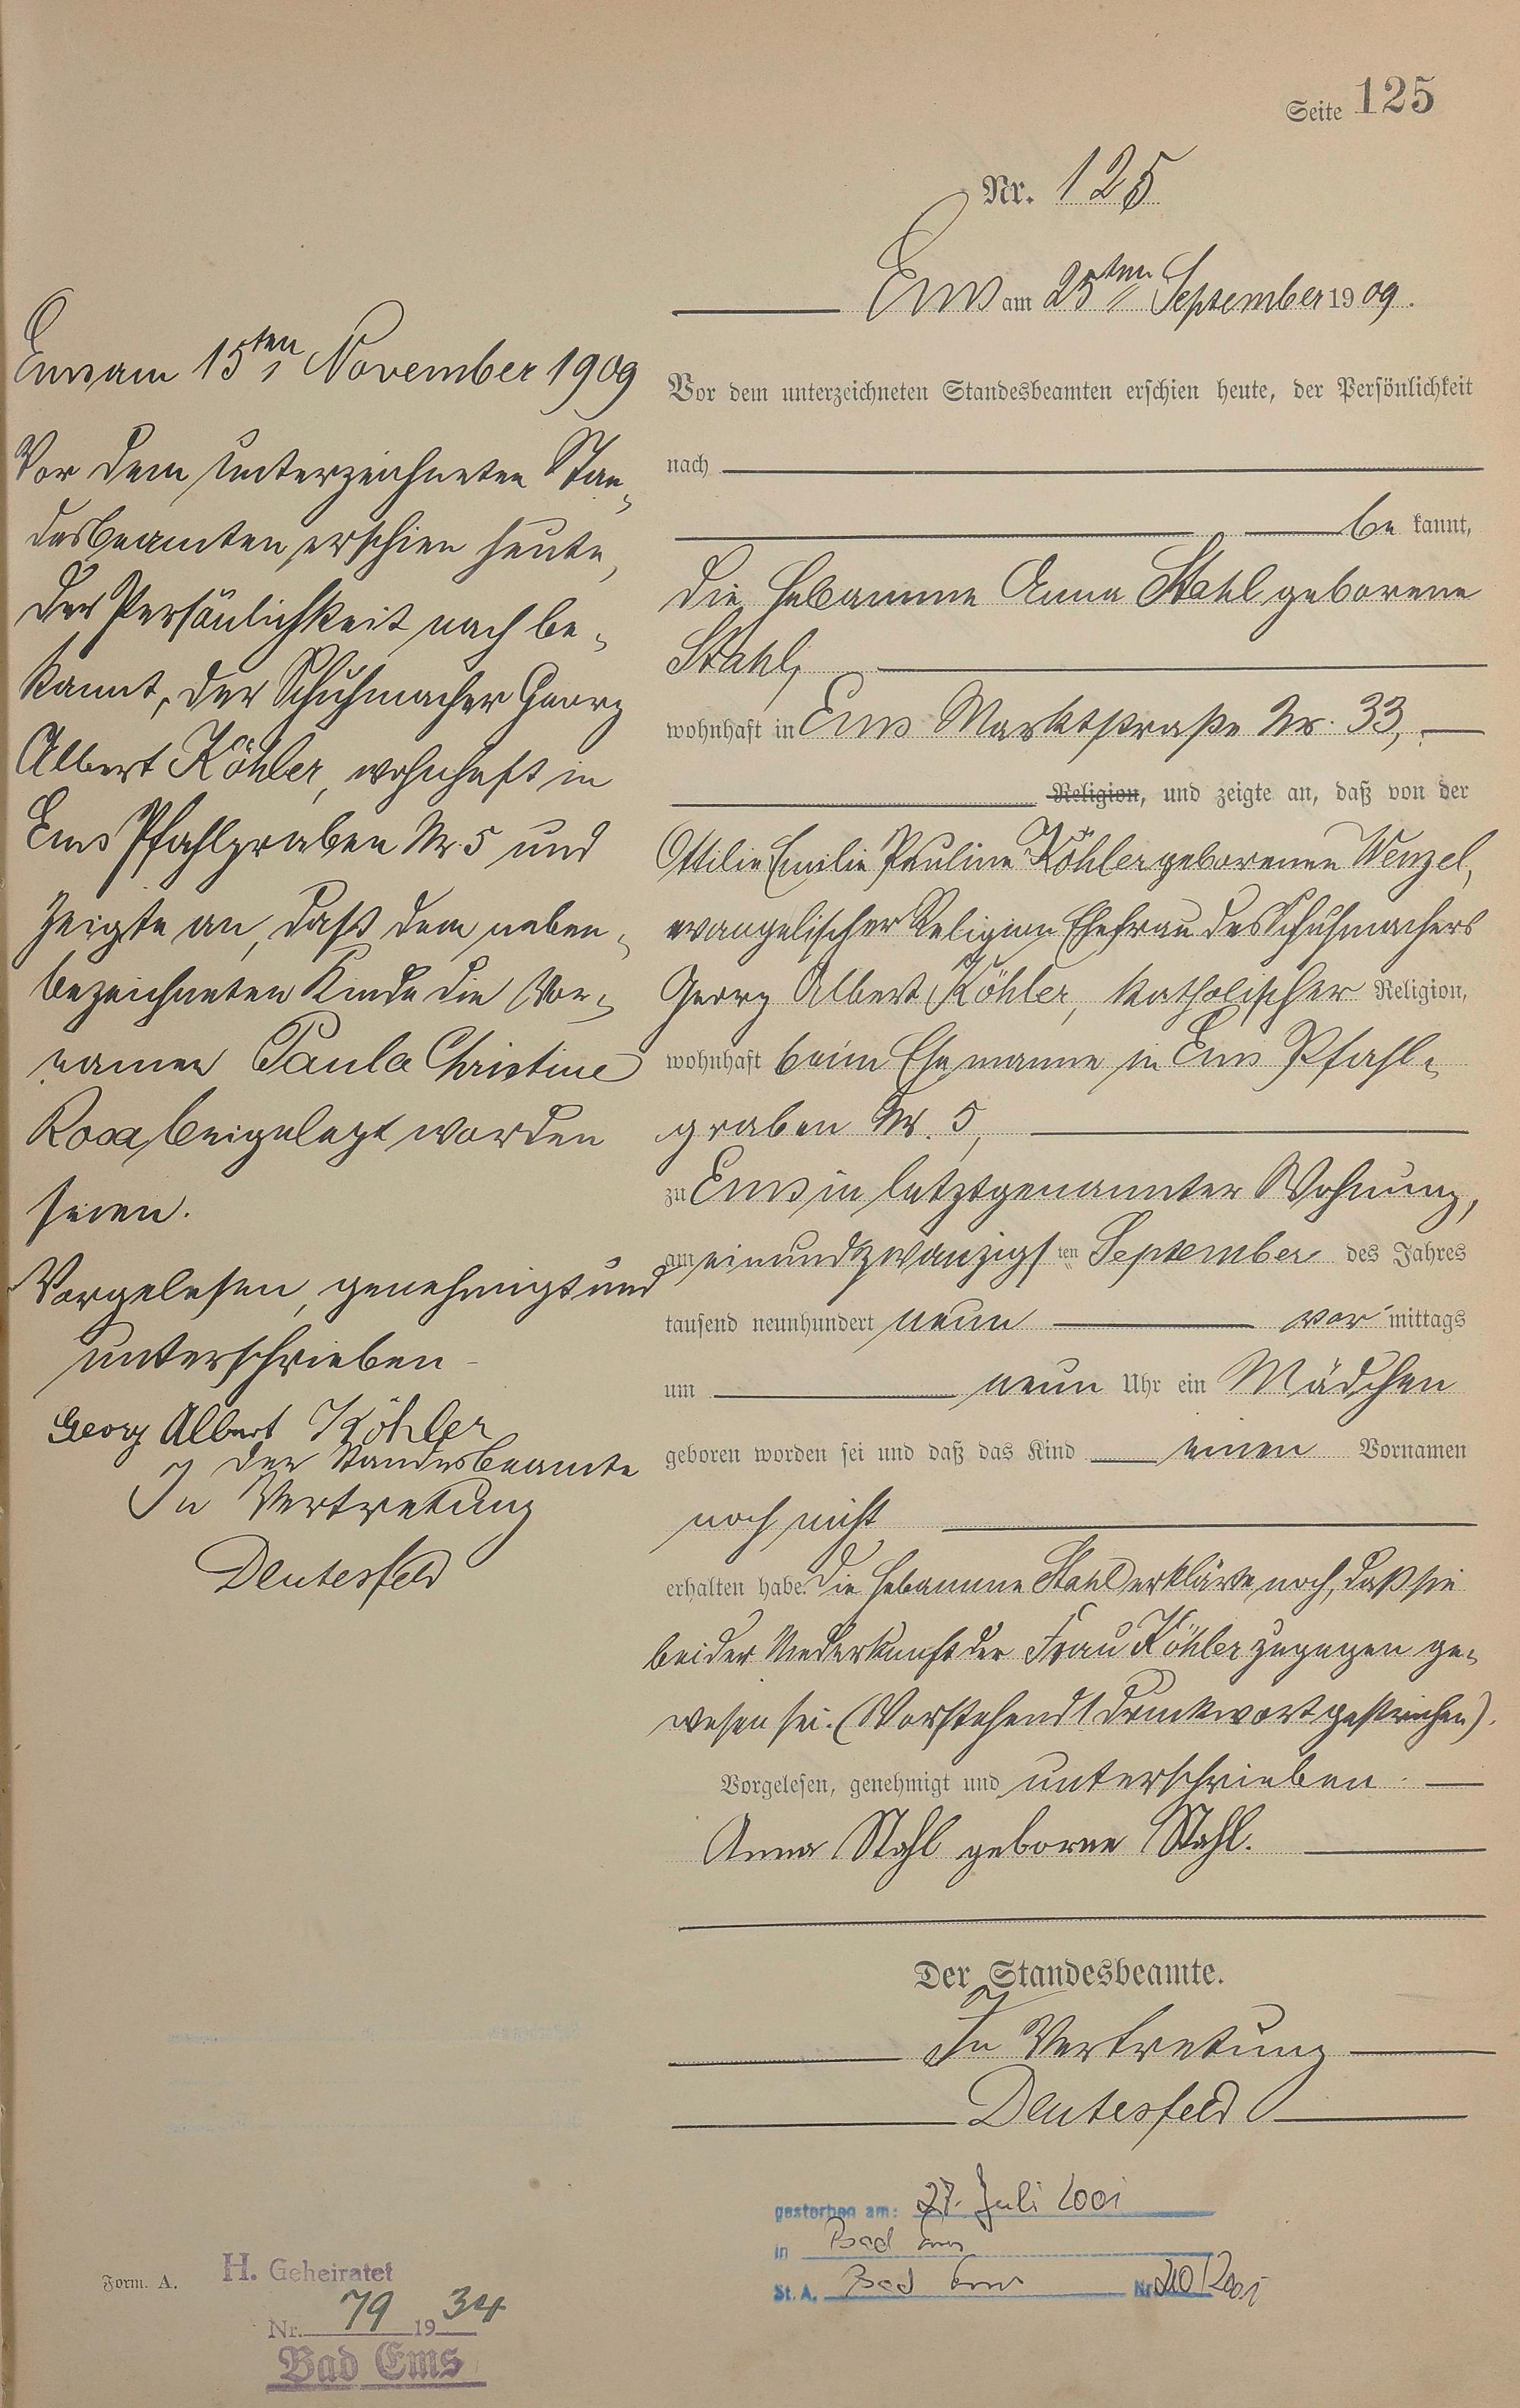 Seite 125
Nr. 125
Ems am 25ten September 1909.
Vor dem unterzeichneten Standesbeamten erschien heute, der Persönlichkeit
nach
be kannt,
die Hebamme Anna Stahl geborene
Stahl,
wohnhaft in Ems Marktstraße Nr. 33,
Religion, und zeigte an, daß von der
Ottilie Emilie Pauline Köhler geborenen Wenzel,
evangelischer Religion Ehefrau des Schuhmachers
Georg Albert Köhler, katholischer Religion,
wohnhaft beim Ehemanne in Ems Pfahl-
graben Nr. 5,
zu Ems in letztgenannter Wohnung,
am einundzwanzigsten September des Jahres
tausend neunhundert neun vor mittags
um neun Uhr ein Mädchen
geboren worden sei und daß das Kind einen Vornamen
noch nicht
erhalten habe. Die Hebamme Stahl erklärte noch, daß sie
bei der Niederkunft der Frau Köhler zugegen ge-
wesen sei. (Vorstehend 1 Druckwort gestrichen).
Vorgelesen, genehmigt und unterschrieben.
Anna Stahl geborne Stahl.
Der Standesbeamte.
In Vertretung
Deutesfeld
gestorben am: 27. Juli 2001
in Bad Ems
St. A. Bad Ems Nr 210/2001
Ems am 15ten November 1909
Vor dem unterzeichneten Stan-
desbeamten erschien heute,
der Persönlichkeit nach be-
kannt, der Schuhmacher Georg
Albert Köhler, wohnhaft in
Ems Pfahlgraben Nr. 5 und
zeigte an, daß dem neben-
bezeichneten Kinde die Vor-
namen Paula Christine
Rosa beigelegt worden
seien.
Vorgelesen, genehmigt und
unterschrieben
Georg Albert Köhler
Der Standesbeamte
In Vertretung
Deutesfeld
Form. A.
H. Geheiratet
Nr. 79 1934
Bad Ems